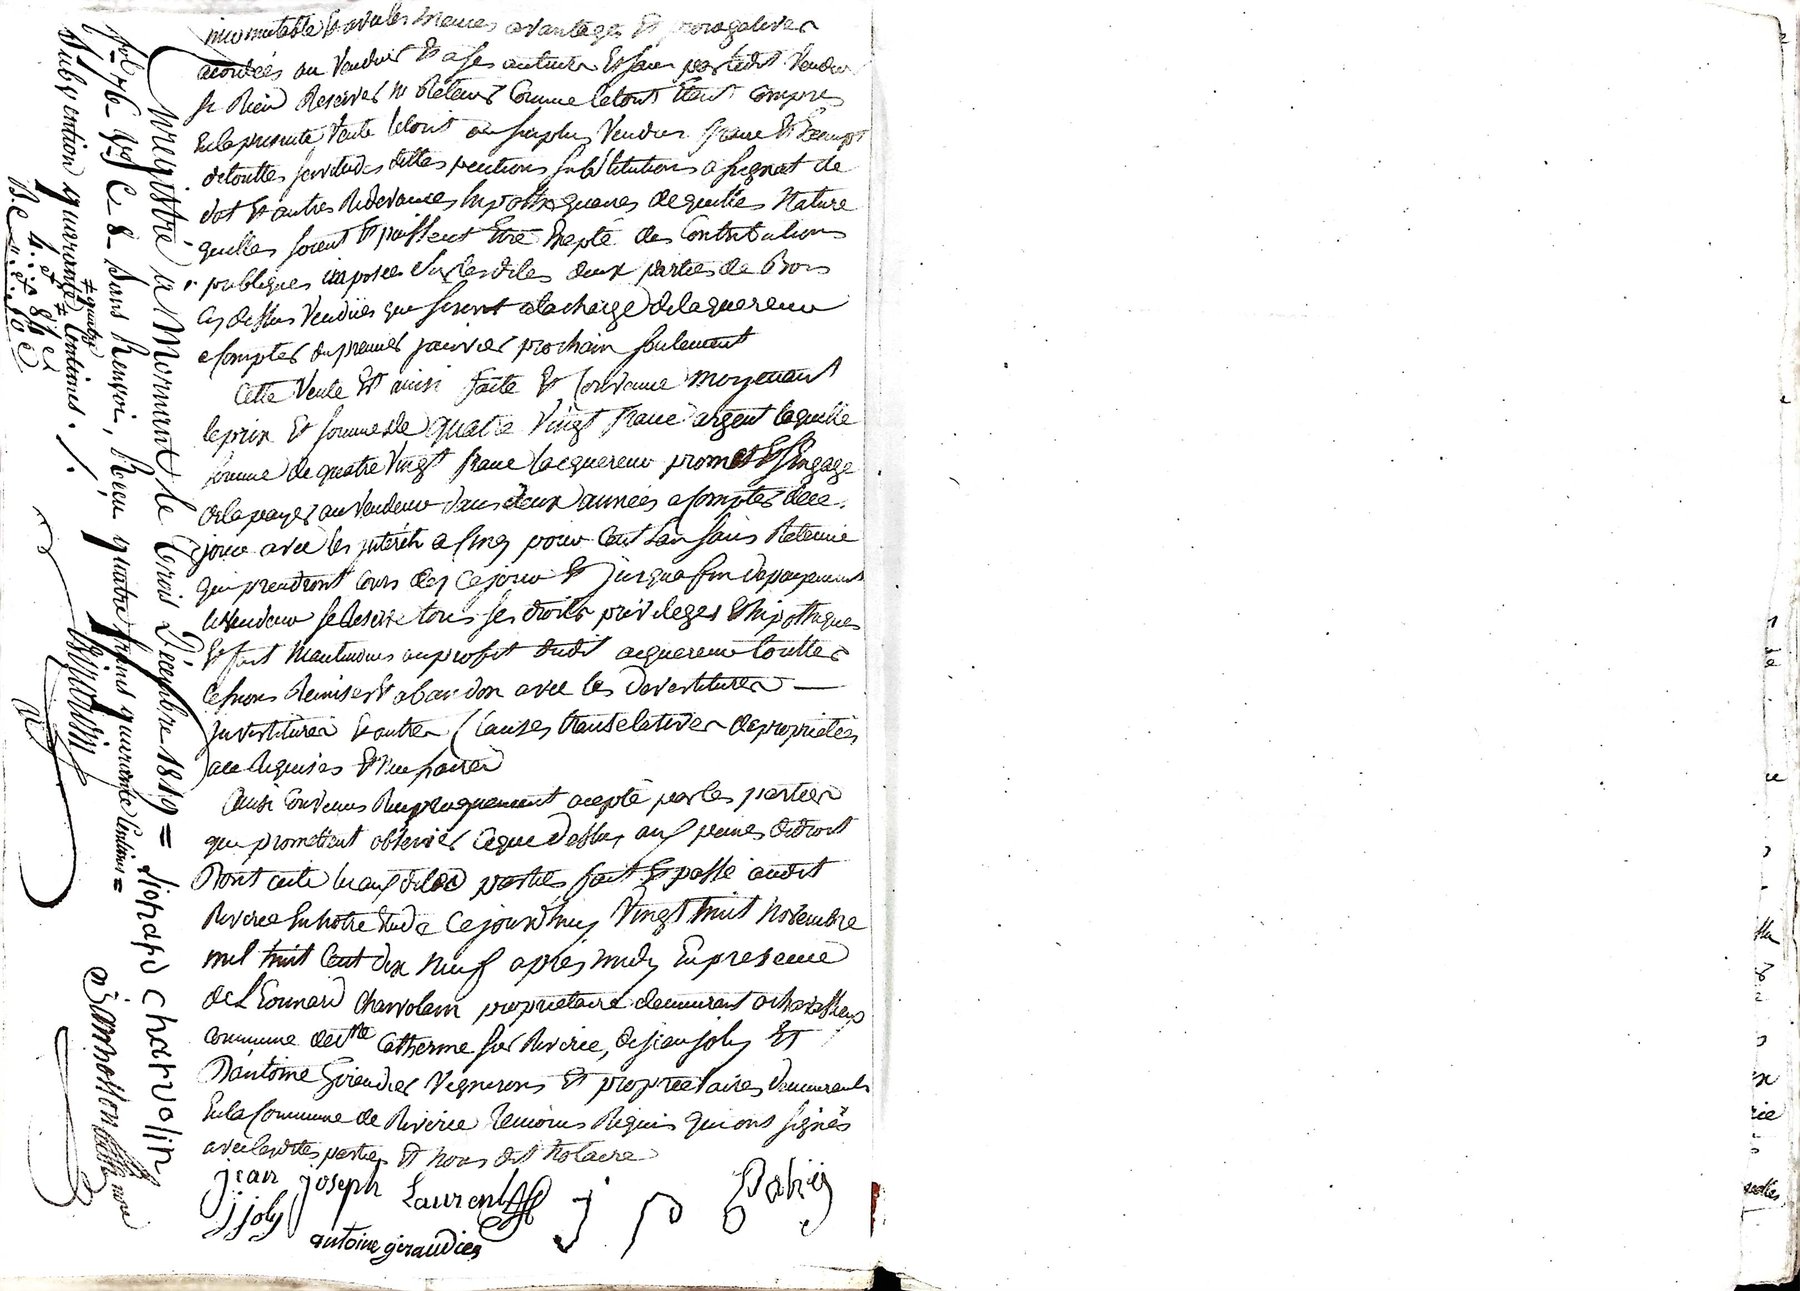 immutable Et avec les memes avantages Et prerogatives
acordées au Vendeur Et a ses auteurs Et sans par ledit Vendeur
se Rien Reserver ni Retenir Comme le tout Etant Compris
En la presente Vente le tout au surplus Vendu franc Et Exempt
de touttes servitudes dettes pentions substitutions assignat de
dot Et autres Redevances hipothequaires de quelle Nature
quelles soient Et puissent Etre Excepté des Contributions
publiques imposées sur lesdites deux parties de Bois
Cy dessus Vendues qui seront a la charge de laquereur
a Compter du premier janvier prochain seulement
Cette Vente Est ainsi faite Et Convenue moyenant
le prix Et somme de quatre Vingt franc argent laquelle
somme de quatre Vingt franc lacquereur promet Et s'Engage
de la payer au Vendeur dans deux années a Compter de ce
jour avec les interêts a Cinq pour Cent l'an sans Retenue
qui prendront Cours des Ce jour Et jusqua fin de payement
le Vendeur se Reserve tous ses droits privileges Et hipotheques
Et fait Maintenues au profit dudit acquereur touttes
Cessions Remises Et abandon avec les devestitures —
investitures Et autres Clauses translatives de proprietés
a ce Requises Et necessaires
Ainsi Convenus Reciproquement acepté par les parties
qui promettent observer Ce que dessus aux peines de droit
Dont acte lu aux dites parties fait Et passé audit
Riverie En notre Etude Ce jourd'huy Vingt huit Novembre
mil huit Cent dix Neuf après midy En presence
de Leonnard Charvolain proprietaire demeurant a
commune de Ste Catherine sur Riverie, de jean joly Et
D'antoine Giraudier Vignerons Et proprietaires demeurants
En la Commune de Riverie temoins Requis qui ont signés
avec lesdites parties Et Nous dit Notaire
jean joseph Laurent
j joly
antoine giraudier
Enregistré à Mornant le trois Décembre 1819 =
fol. 76 Vo C 8 Sans Renvoi, Recu quatre francs quarante Centimes =
Subvention quarante = quatre = Centimes ./.
4.. 84 c
charvolin